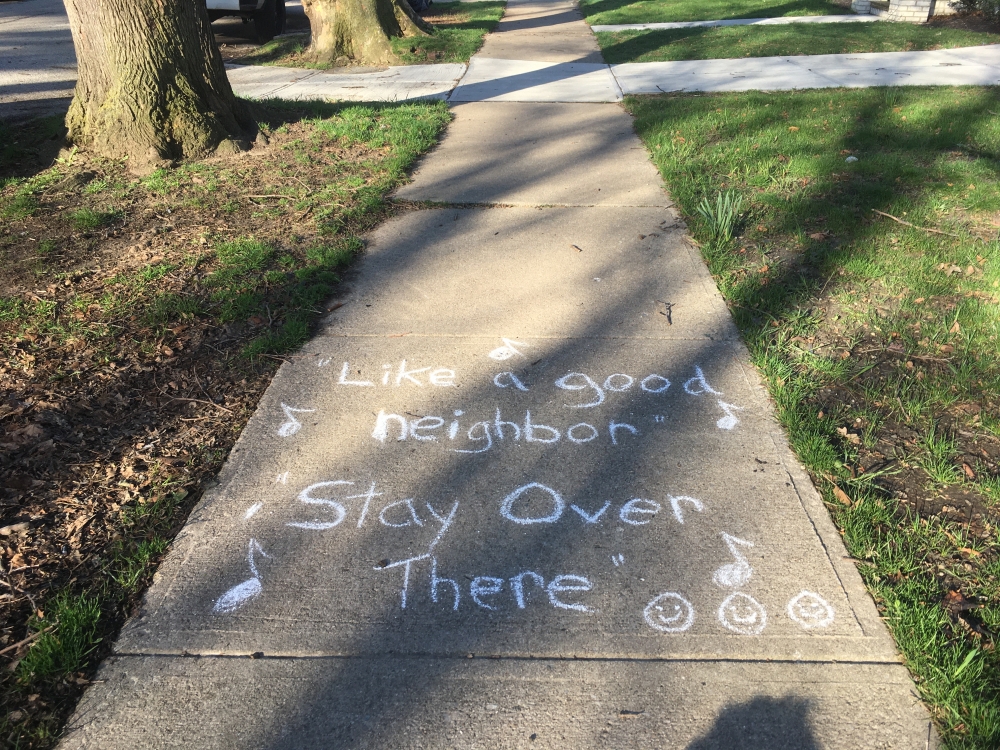 "Like a good
neighbor"
"Stay Over
There"